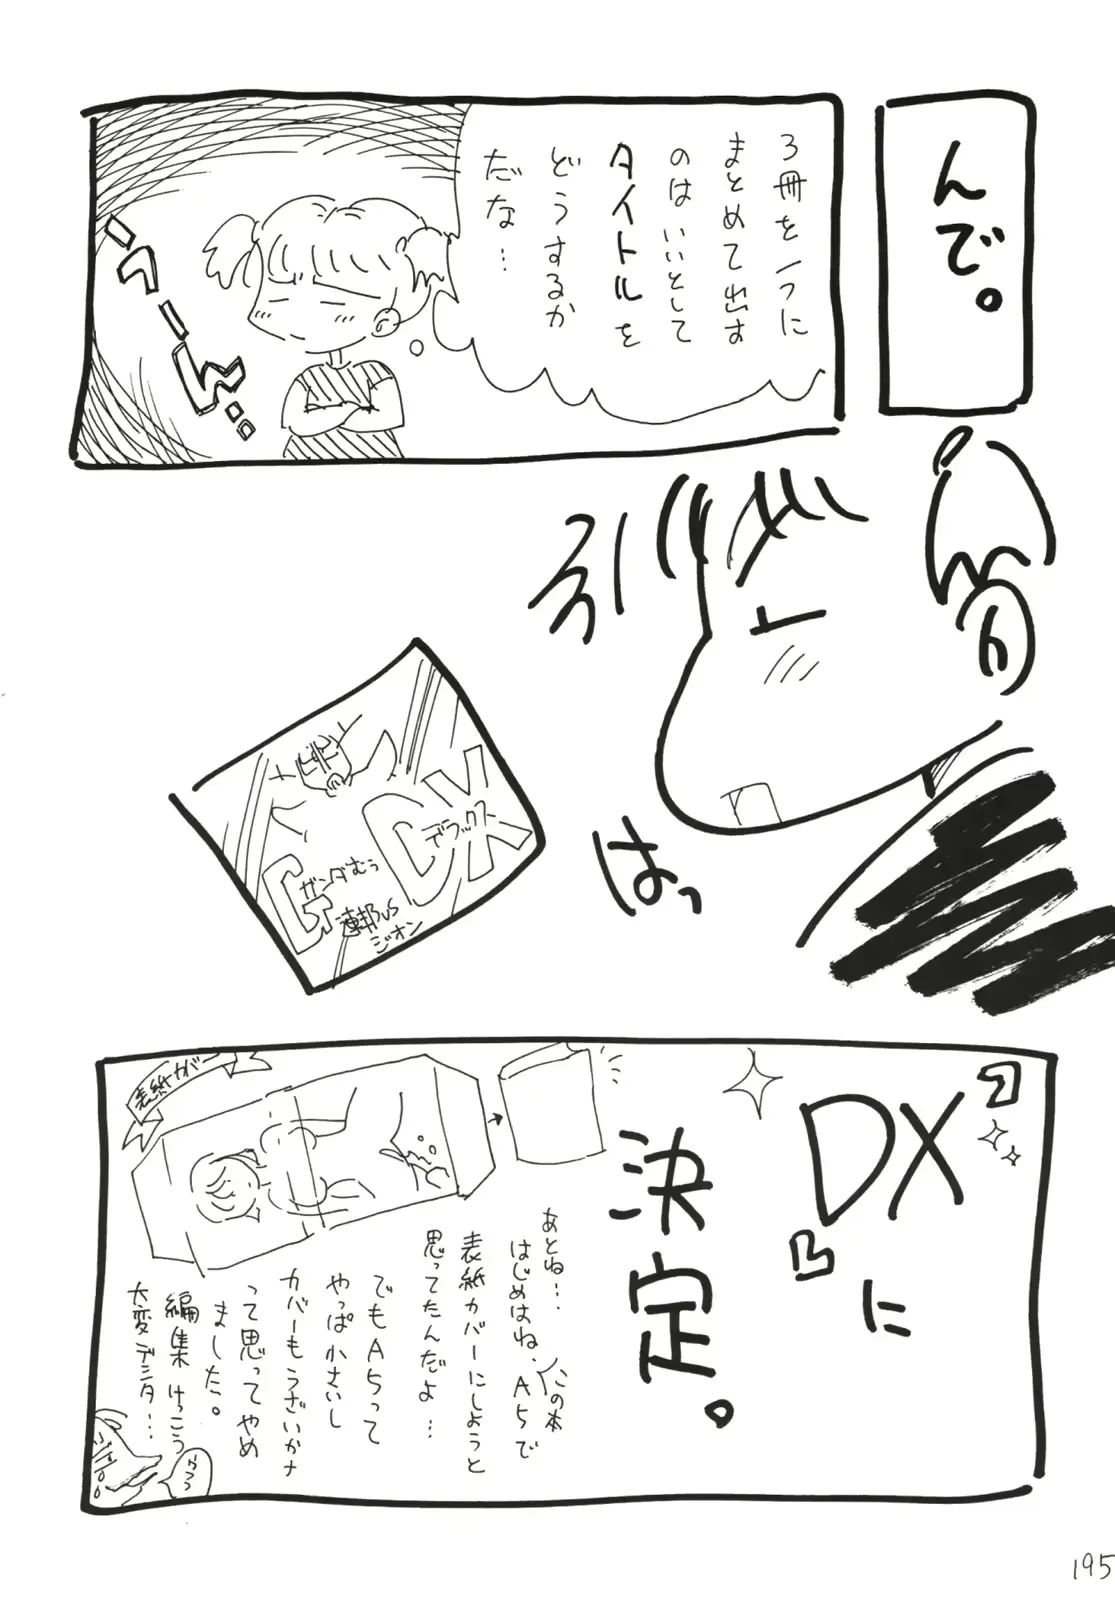 んで。
3冊を一つに
まとめて出す
のはいいとして
タイトルを
どうするか
だな…
うーん…
はっ
DX
デラックス
G
ガンダむぅ
連邦vs
ジオン
「DX」に
決定。
表紙カバー
あとね…
はじめはね、この本
A5で
表紙カバーにしようと
思ってたんだよ…
でもA5って
やっぱ小さいし
カバーもうざいかナ
って思ってやめ
ました。
編集けっこう
大変デシタ…
195